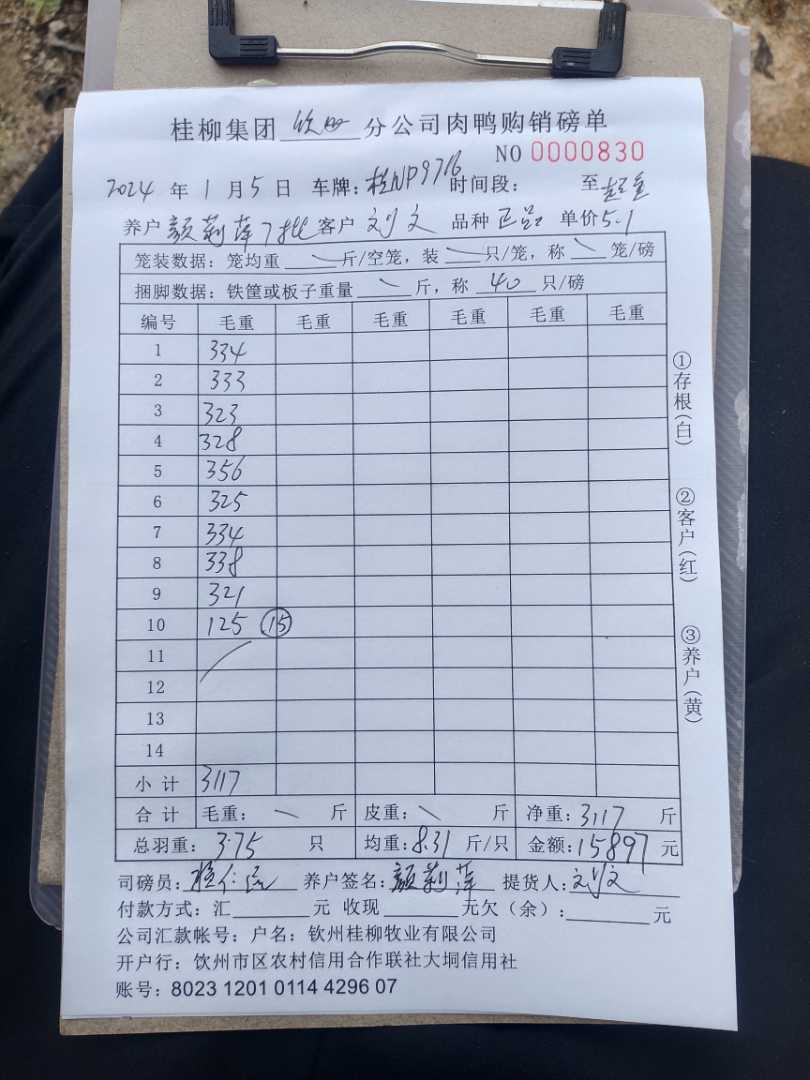 桂柳集团 钦州 分公司肉鸭购销磅单
NO 0000830
2024 年 1 月 5 日 车牌：桂NP9716 时间段： 至
养户 颜莉萍7批 客户 刘文 品种 正品 单价 5.1
笼装数据：笼均重 \ 斤/空笼，装 \ 只/笼，称 \ 笼/磅
捆脚数据：铁筐或板子重量 \ 斤，称 40 只/磅
编号 毛重 毛重 毛重 毛重 毛重 毛重
1 334
2 333
3 323
4 328
5 356
6 325
7 334
8 338
9 321
10 125 ⑮
11
12
13
14
小 计 3117
合 计 毛重： \ 斤 皮重： \ 斤 净重：3117 斤
总羽重：375 只 均重：8.31 斤/只 金额：15897 元
司磅员： 养户签名：颜莉萍 提货人：刘文
付款方式：汇 元 收现 元欠（余）： 元
公司汇款帐号：户名：钦州桂柳牧业有限公司
开户行：饮州市区农村信用合作联社大垌信用社
账号：8023 1201 0114 4296 07
①存根(白)
②客户(红)
③养户(黄)